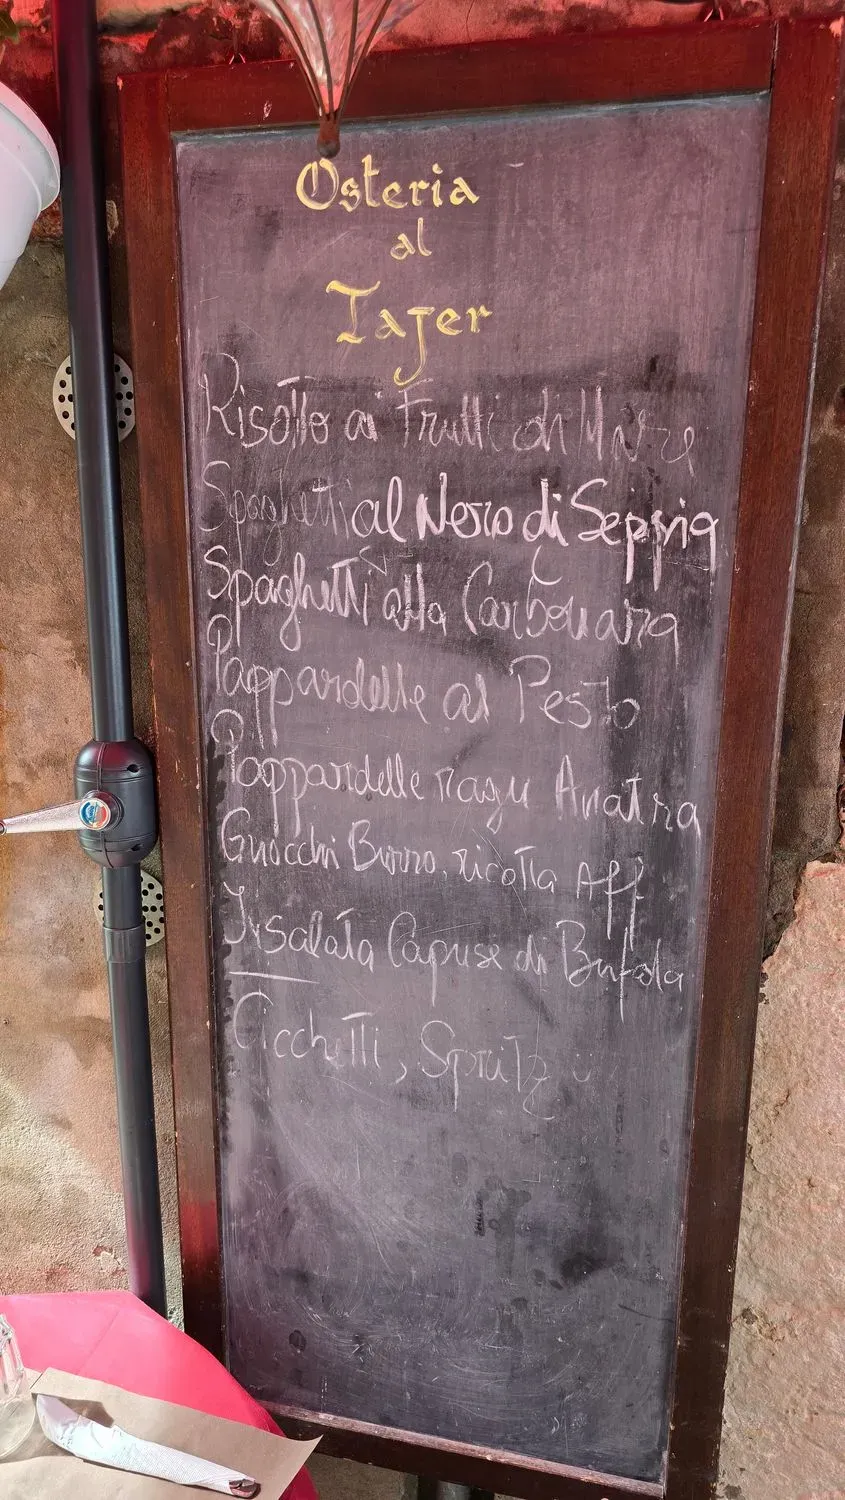 Osteria
al
Tajer
Risotto ai Frutti di Mare
Spaghetti al Nero di Seppia
Spaghetti alla Carbonara
Pappardelle al Pesto
Pappardelle ragu Anatra
Gnocchi Burro, ricotta Aff
Insalata Caprese di Bufala
Cicchetti, Spritz